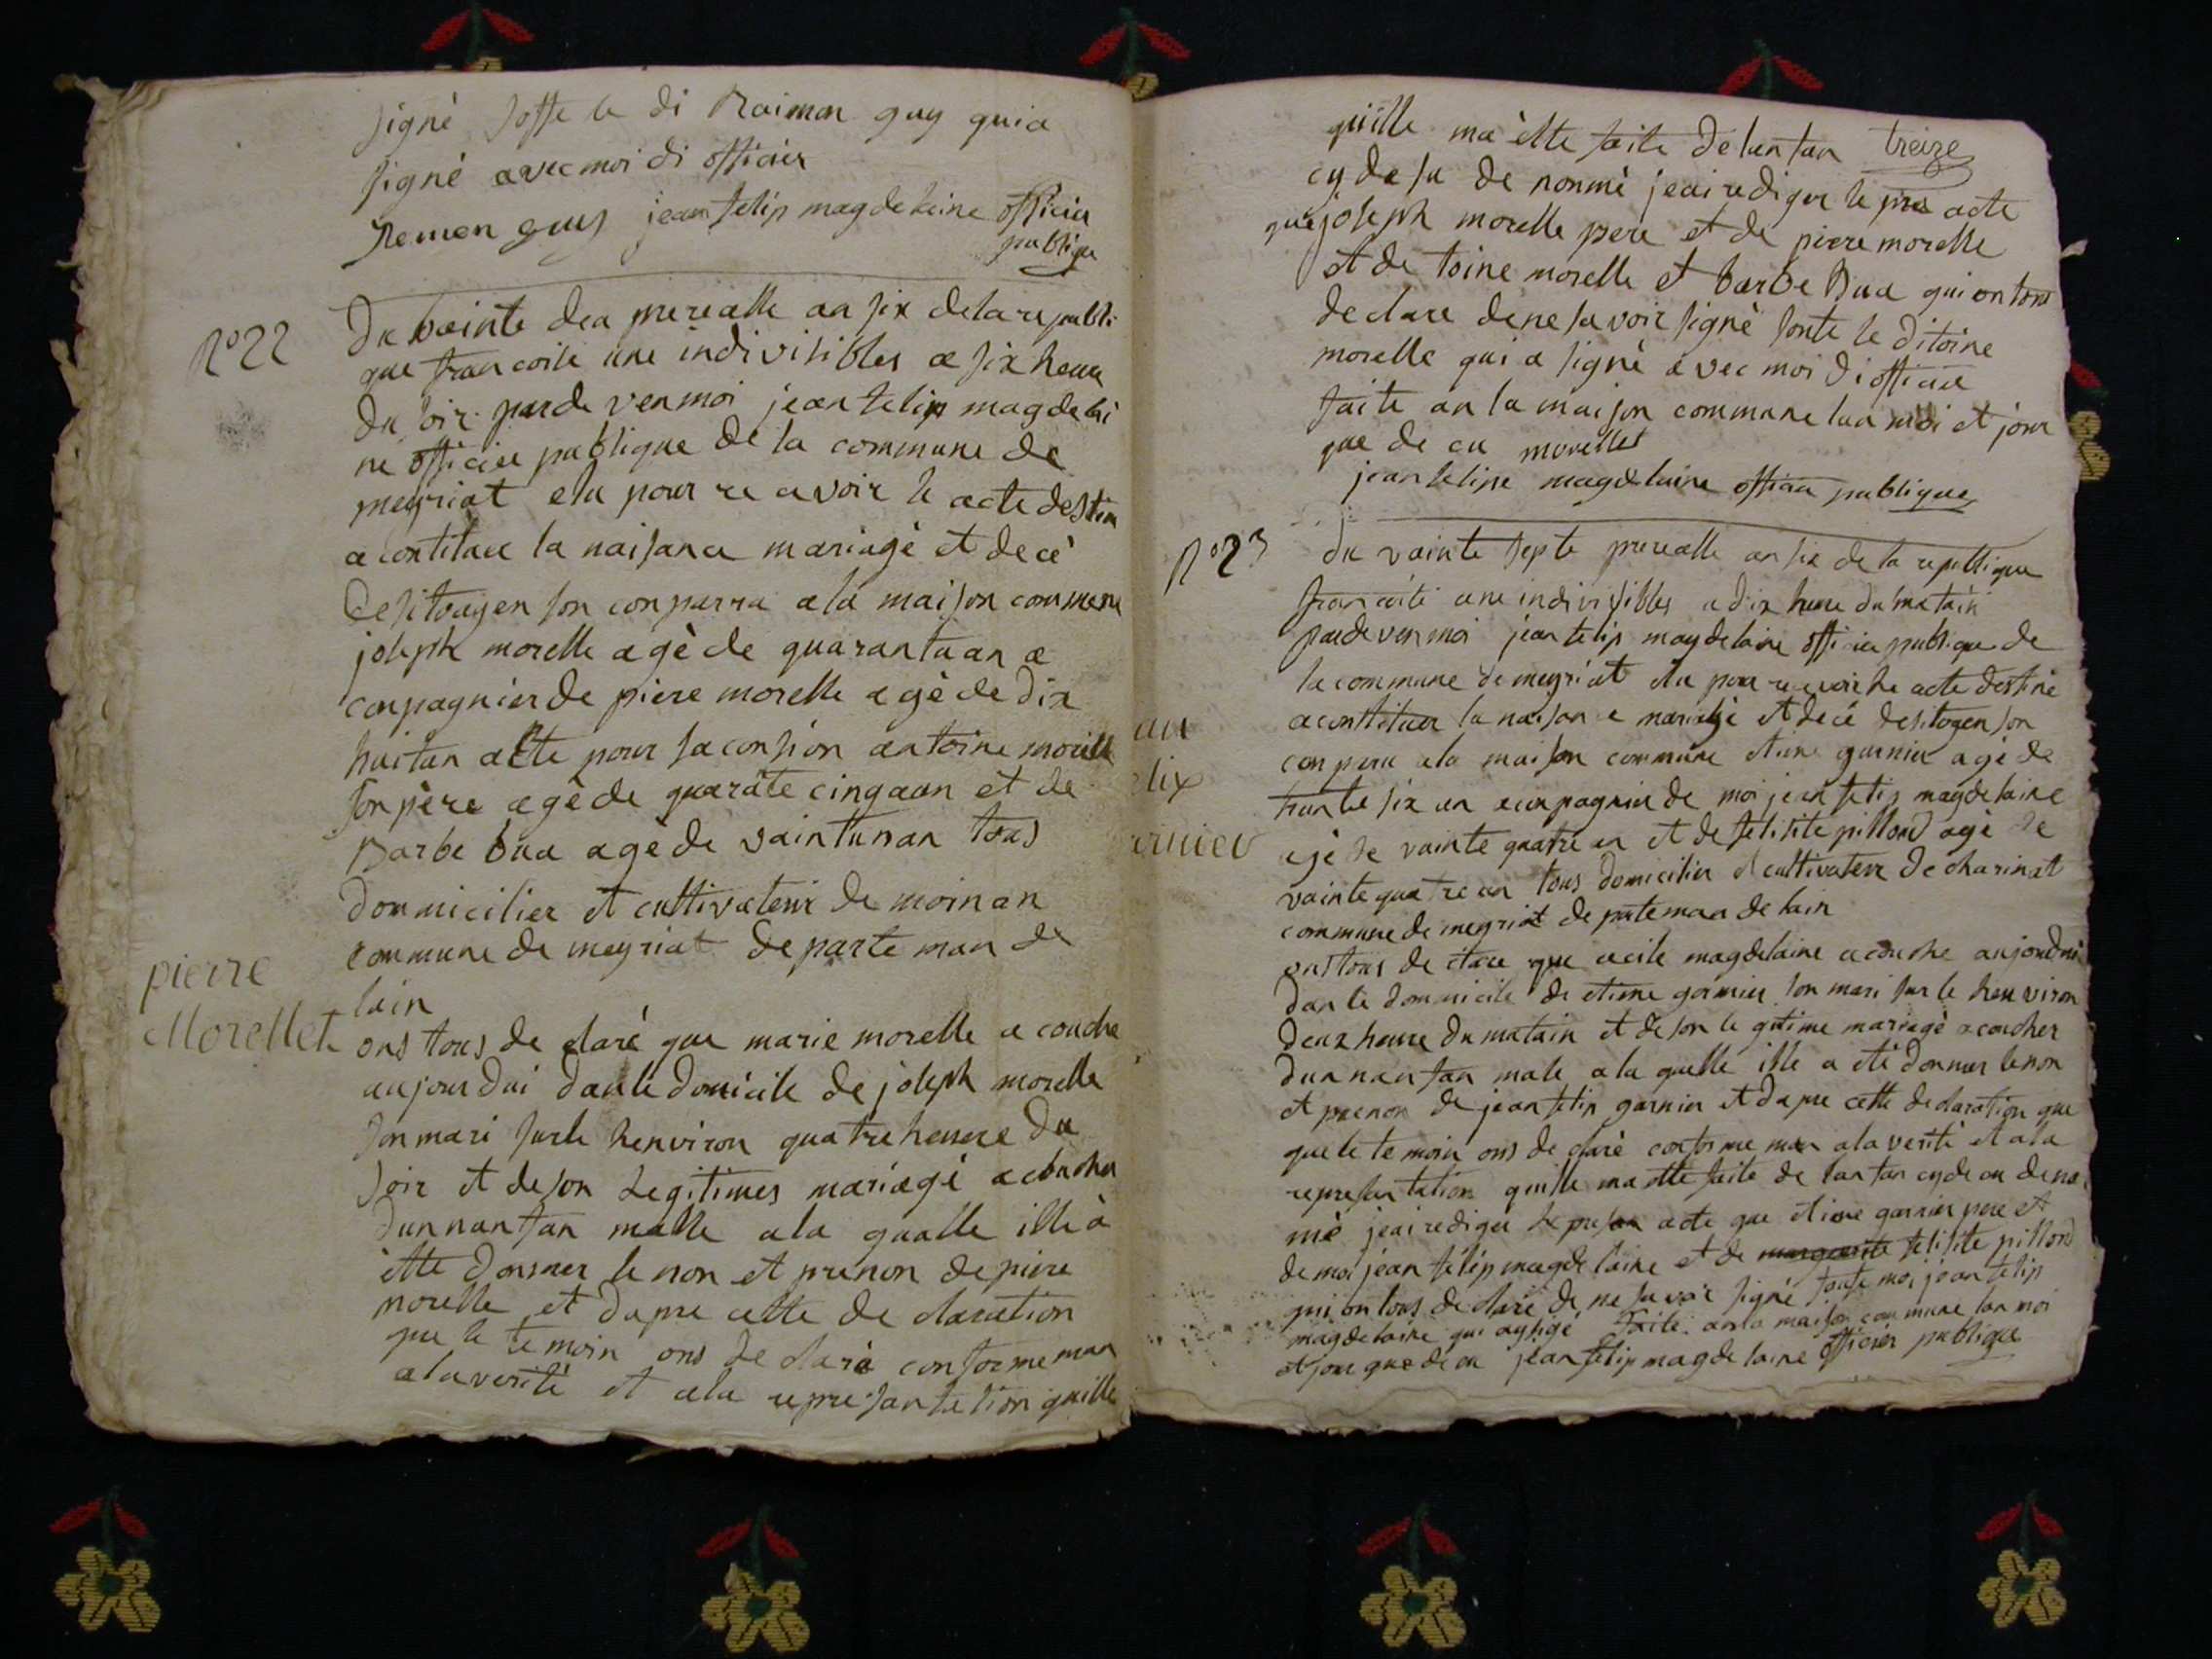 signè soffe le di Raimon guy quia
signé avec moi di officier
Remon guy jean felip magdelaine officier
publique
N°22
Du vainte dea prerealle an six de la republi
que francoise une indivisibles a six heure
du soir par de venmoi jean felip magdelai
ne officier publique de la commune de
meyriat elu pour re avoir le acte destin
a contitaer la naisance mariagè et decè
de sitoayen son conparra a la maison commune
joseph morelle agè de quarantaan a
conpagnier de piere morelle agè de dix
huitan alte pour saconsion antoine morelle
son père agè de quarate cinqaan et de
Barbe bua agè de vaintunan tous
dommicilier et cultivateur de moinan
commune de meyriat de parte man de
lain
pierre
Morellet
ons tous de claré que marie morelle a couche
aujourdui dan le domicile de joseph morelle
son mari sur le henviron quatre heurere du
soir et de son Legitimes mariagè acoucher
dunnanfan malle a la qualle ille à
ètte donner le non et prenon de piere
morelle et dapre cette de claration
que le temoin ons de clarè conformeman
a la verité et a la represantasion quille
quille ma ètte faite de lanfan treize
cy de su de nonmè jeai rediger le pres acte
que joseph morelle pere et de piere morelle
et de toine morelle et barbe bua qui on tous
declare de ne savoir signè sonte le ditoine
morelle qui a signè avec moi di officier
faite an la maison commune lan moi et jour
que de cu morellet
jean felipe magdelaine officier publique
N°23
du vainte septe prerealle an six de la republique
francaise une indivisibles a dix heure du matain
par de ven moi jean felip magdelaine officier publique de
la commune de meyriat elu pour recevoir le acte destiné
a constituer la naisance mariagè et decé de sitoyen son
conparu a la maison commune etiene garnier agè de
trante six an acompagnier de moi jean felip magdelaine
agè de vainte quatre an et de felisite pillond agè de
vainte quatre an tous domicilier et cultivateur de charinat
commune de meyriat de parteman de lain
ons tous de clare que cecile magdelaine acouche aujourdui
dan le dommicile de etiene garnier son mari sur le henviron
deux heure du matain et de son legitime mariagè acoucher
dunnanfan male a la quelle ille a étè donner le non
et prenon de jean felip garnier et dapre cette declaration que
que le temoin ons de clarè conforme man a la verité et a la
represantation quille ma ette faite de lanfan cy de cu deno
mè jeai rediger le presan acte que etiene garnier pere et
de moi jean felip magdelaine et de marguerite felisite pillond
qui on tous de clarè de ne savoir signé soufe moi jean felip
magdelaine qui ay signé faite an la maison commune lan moi
et jour que de cu jean felip magdelaine officier publique